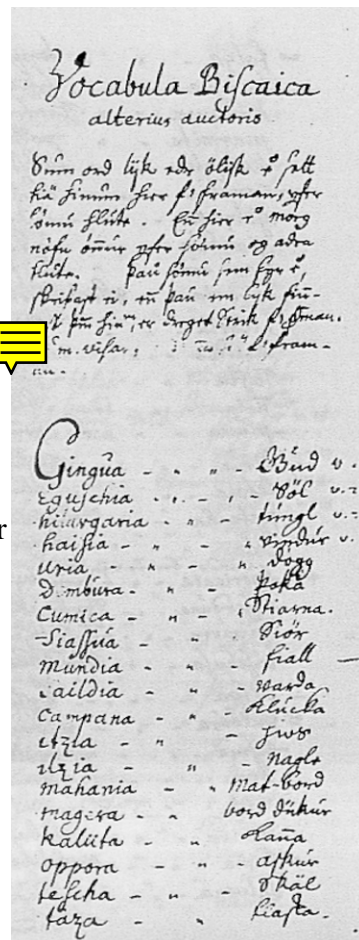 Vocabula Biscaica
alterius auctoris
Sum ord lijk edr ölijk er sett
hiä hinum hier f framan, yfer
sömu hlute. En hier er mörg
nöfn önnur yfer sömu og adra
hlute. Þau sömu sem fyr er,
skrifast ei, en þau em lijk finn-
dreget strik f framan.
visar, fram-
an.
Gingua - " " - Gud v -
Eguschia - " - " - Söl v.-
hilargaria - " - tungl v.-
haisia - " - " vindur v.
uria " - " dogg
Dembura - " - þoka
Cumica - " - " Stiarna.
Siassua - " - Siór
Mundia - " - fiall -
Saildia - " - varda
Campana - " - Klucka
itzia - " - hws
iltzia - " - Nagle
mahania - " Mat-bord
magera - " bord dukur
kaluita - " Kanna
oppora - " - askur
tescha - " - Skäl
taza - " - Kiasta.
r